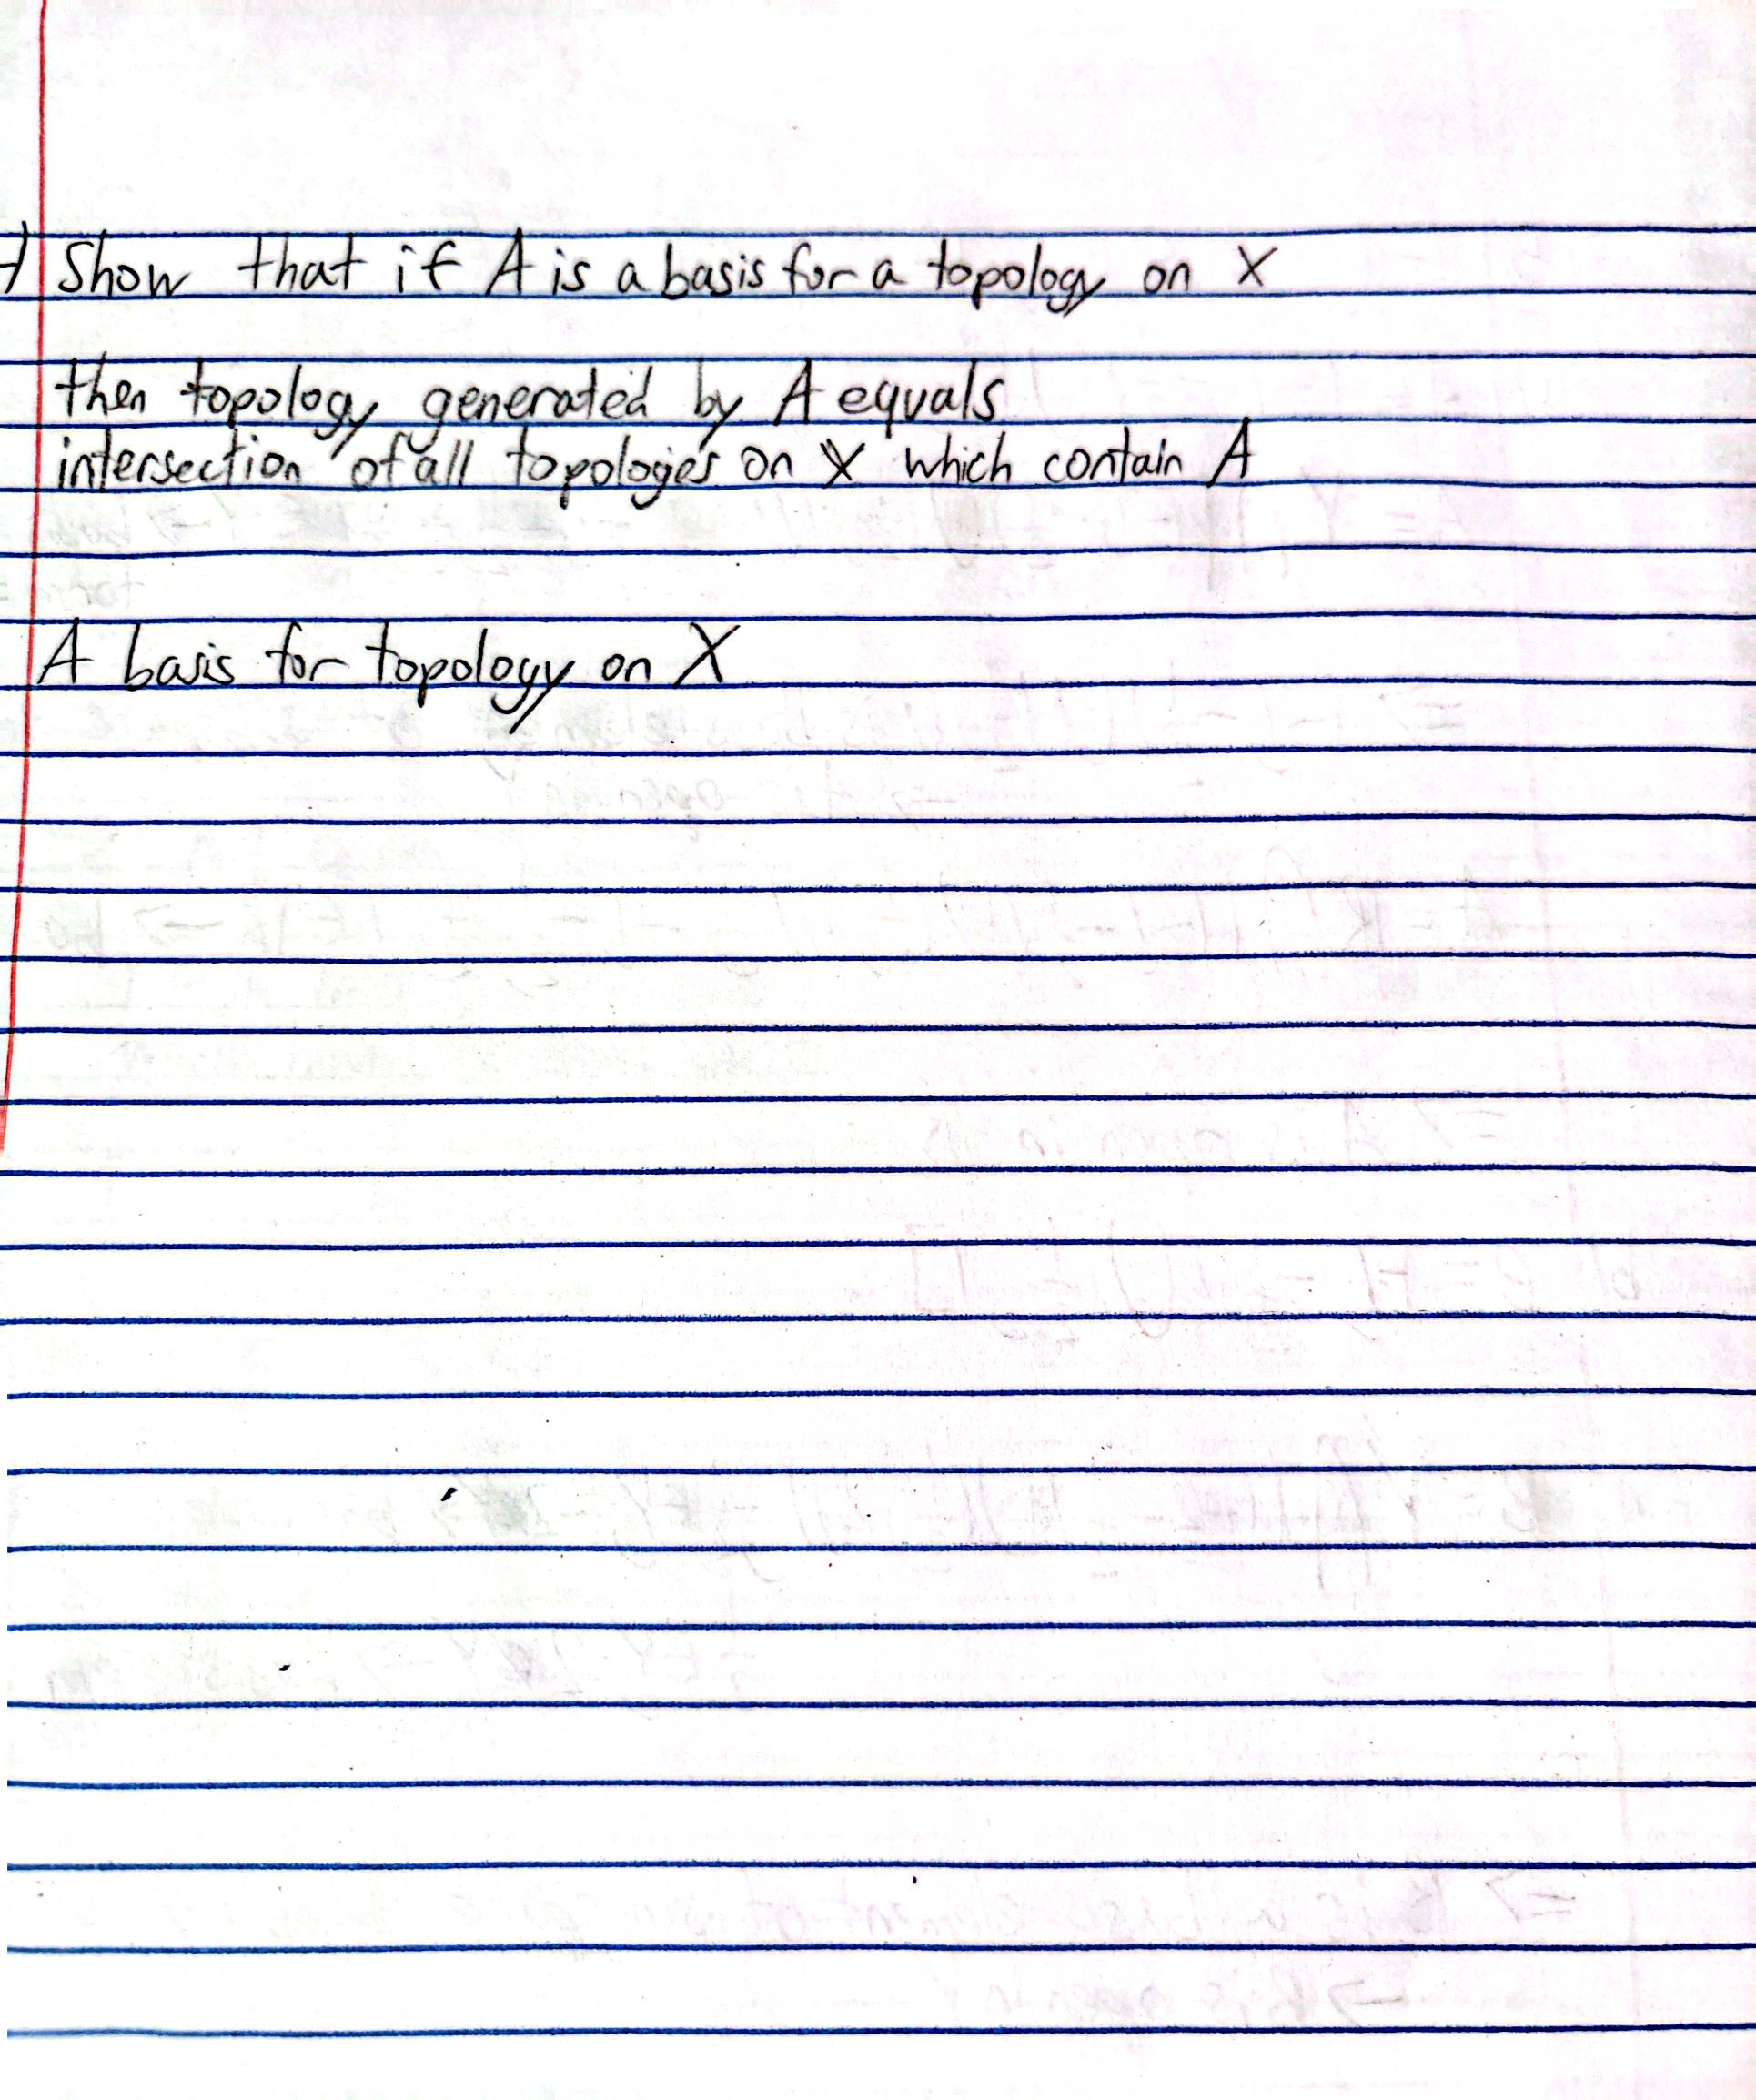 Show that if A is a basis for a topology on X
then topology generated by A equals
intersection of all topologies on X which contain A
A basis for topology on X